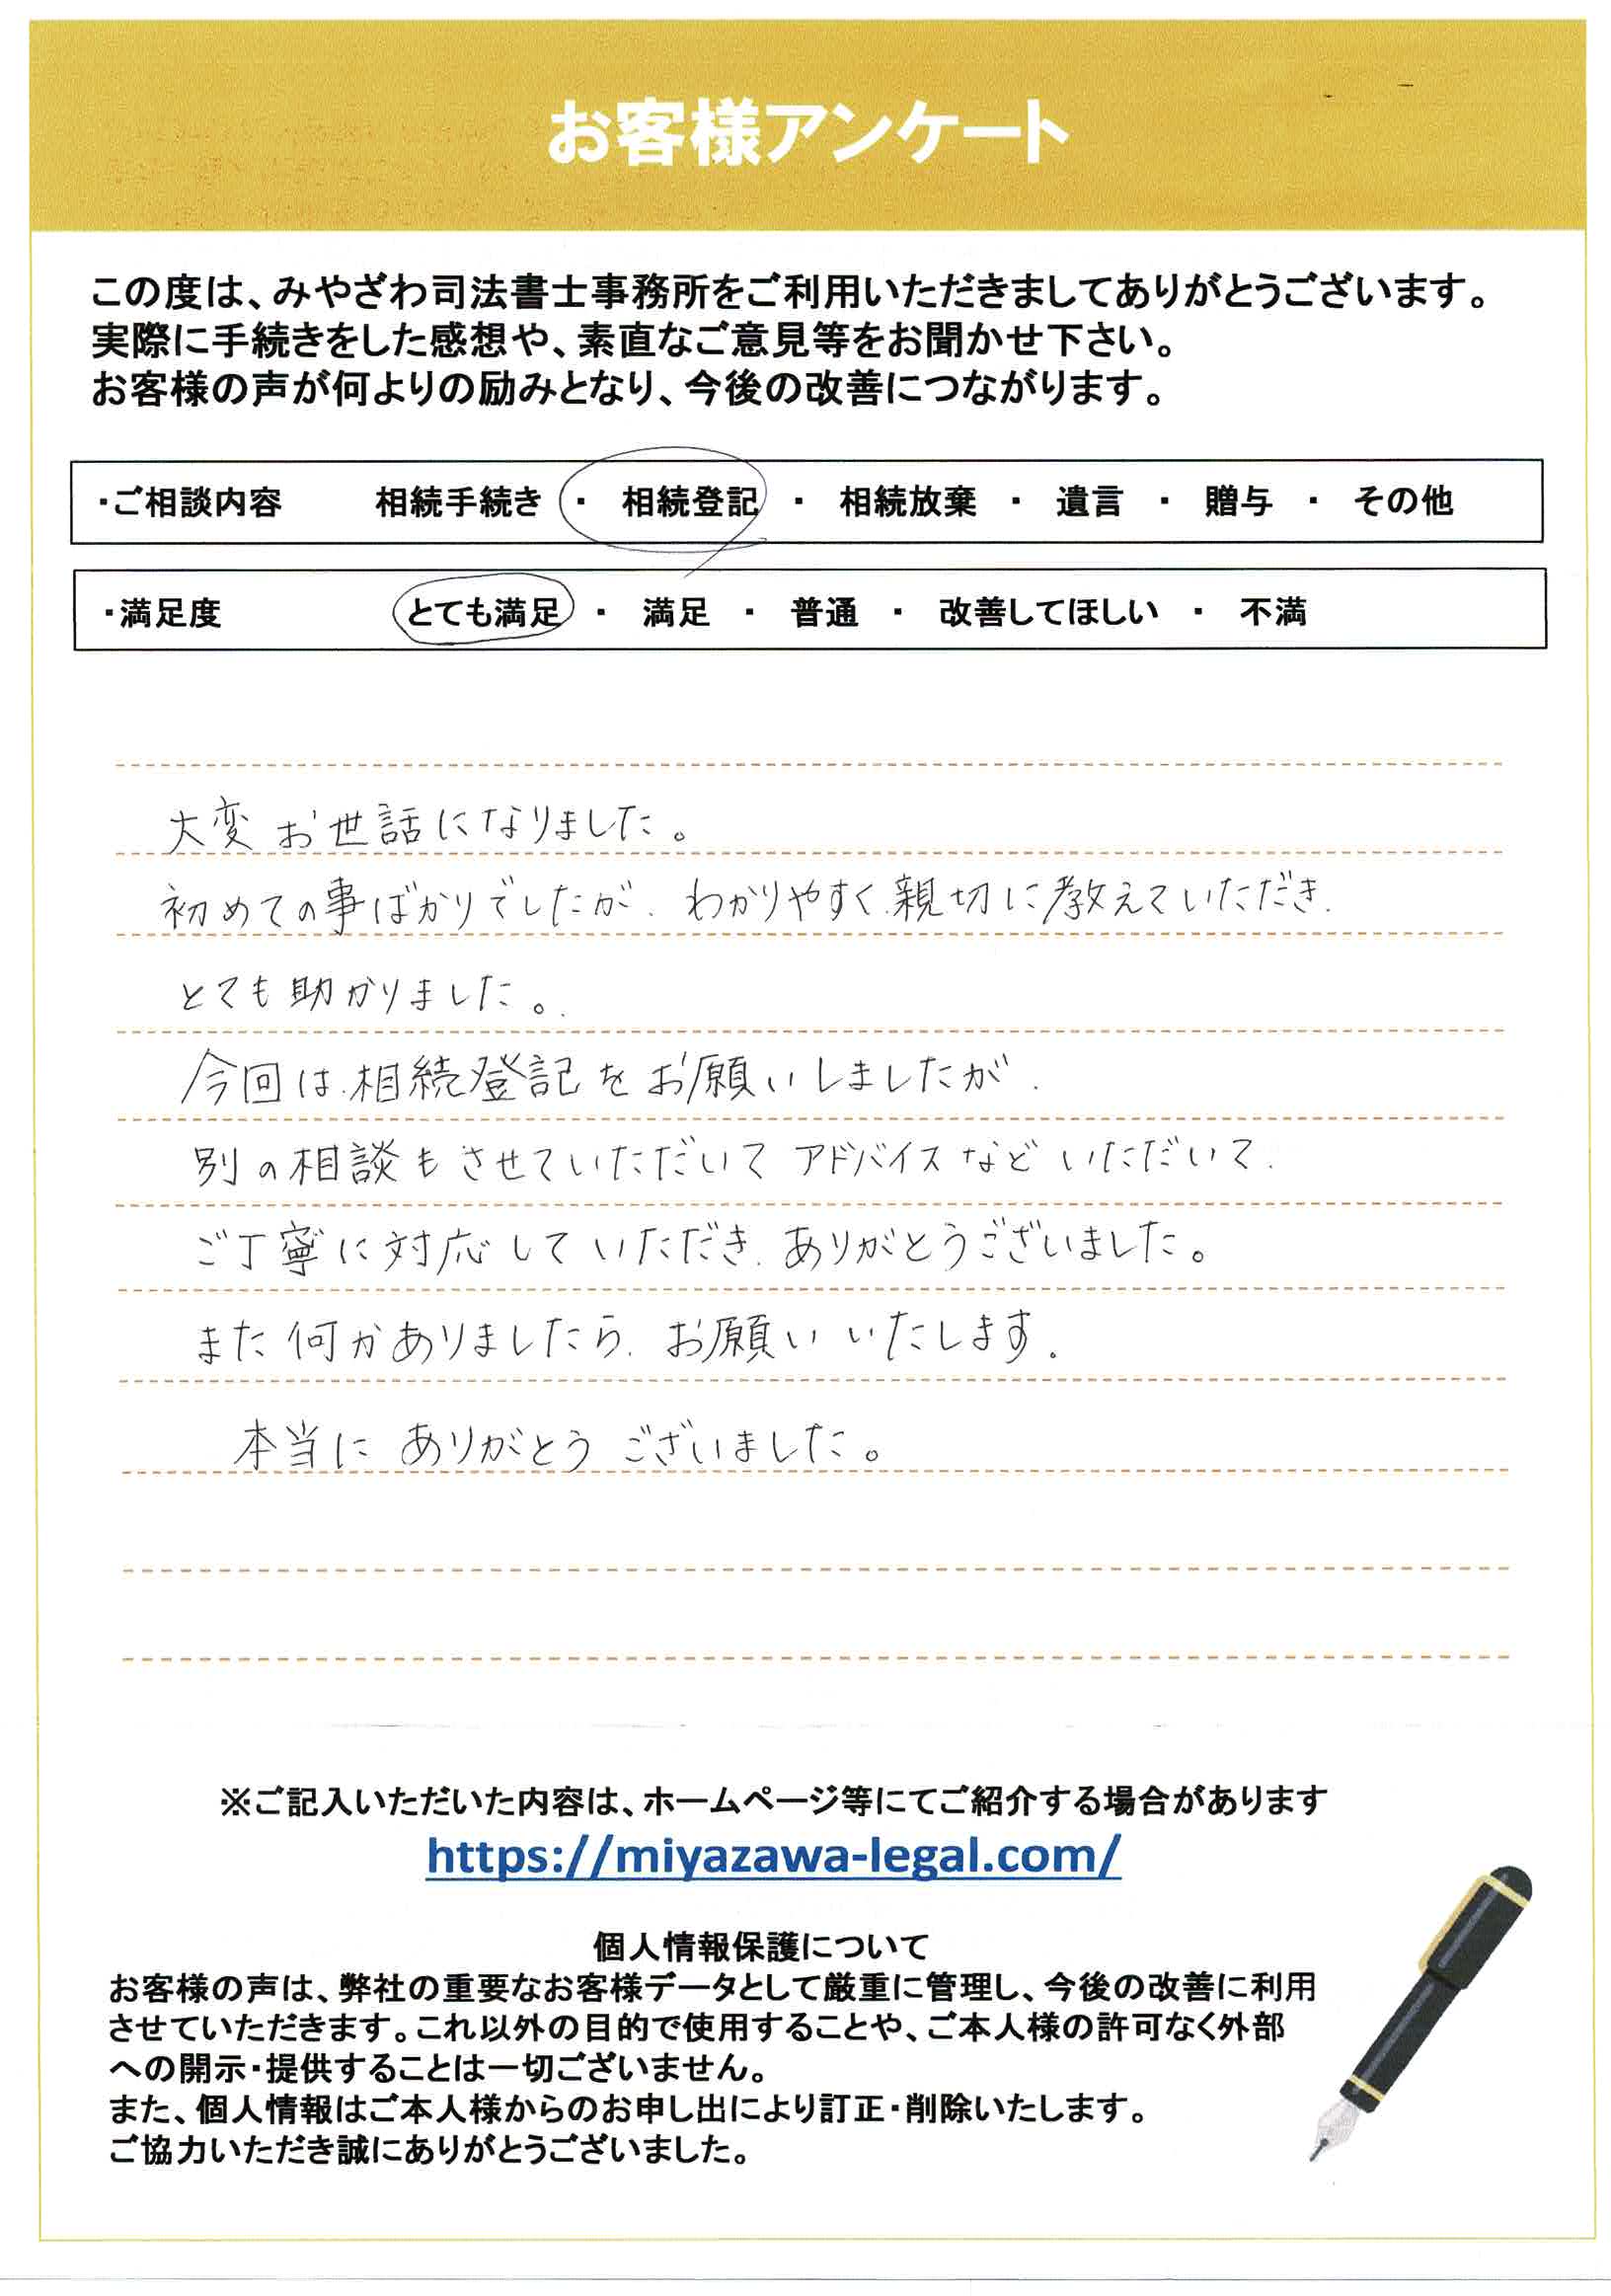 お客様アンケート
この度は、みやざわ司法書士事務所をご利用いただきましてありがとうございます。
実際に手続きをした感想や、素直なご意見等をお聞かせ下さい。
お客様の声が何よりの励みとなり、今後の改善につながります。
・ご相談内容 相続手続き ・ 相続登記 ・ 相続放棄 ・ 遺言 ・ 贈与 ・ その他
・満足度 とても満足 ・ 満足 ・ 普通 ・ 改善してほしい ・ 不満
大変お世話になりました。
初めての事ばかりでしたが、わかりやすく、親切に教えていただき、
とても助かりました。
今回は、相続登記をお願いしましたが、
別の相談もさせていただいて アドバイスなどいただいて、
ご丁寧に対応していただき、ありがとうございました。
また何かありましたら、お願いいたします。
本当に ありがとう ございました。
※ご記入いただいた内容は、ホームページ等にてご紹介する場合があります
https://miyazawa-legal.com/
個人情報保護について
お客様の声は、弊社の重要なお客様データとして厳重に管理し、今後の改善に利用
させていただきます。これ以外の目的で使用することや、ご本人様の許可なく外部
への開示・提供することは一切ございません。
また、個人情報はご本人様からのお申し出により訂正・削除いたします。
ご協力いただき誠にありがとうございました。